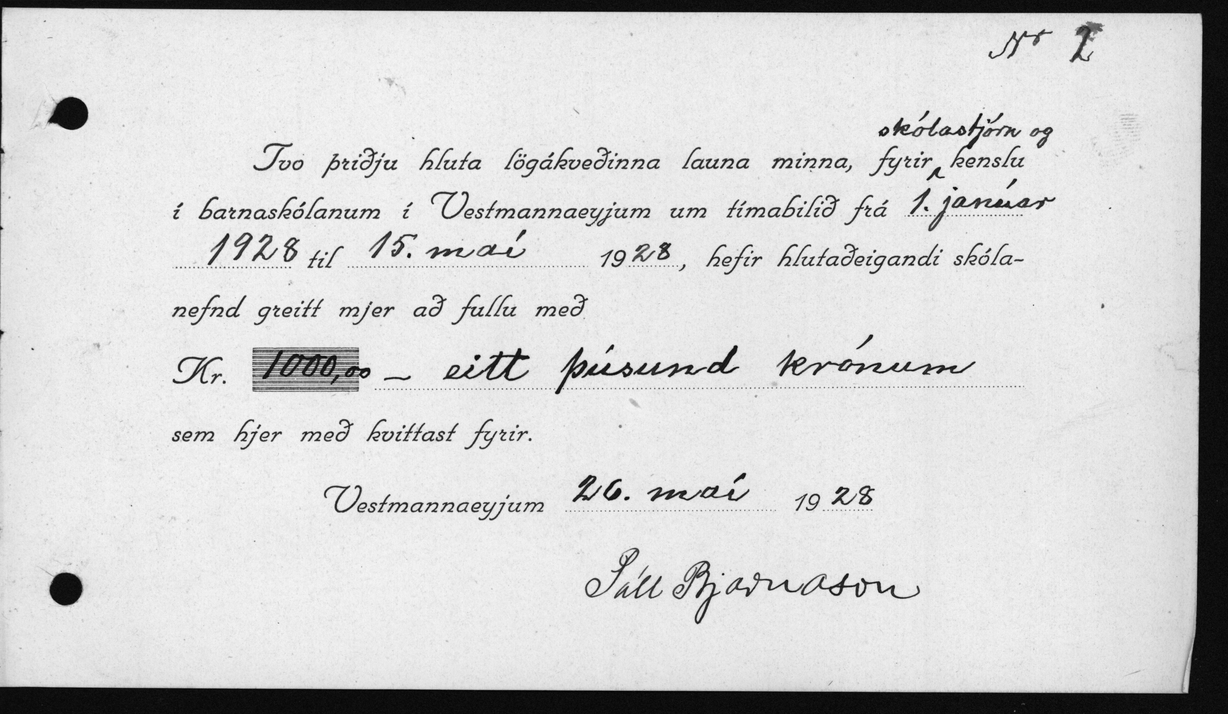 Nr 2
skólastjórn og
Tvo þriðju hluta lögákveðinna launa minna, fyrir kenslu
í barnaskólanum í Vestmannaeyjum um tímabilið frá 1. janúar
1928 til 15. maí 1928, hefir hlutaðeigandi skóla-
nefnd greitt mjer að fullu með
Kr. 1000,00 – eitt þúsund krónum
sem hjer með kvittast fyrir.
Vestmannaeyjum 26. maí 1928
Páll Bjarnason